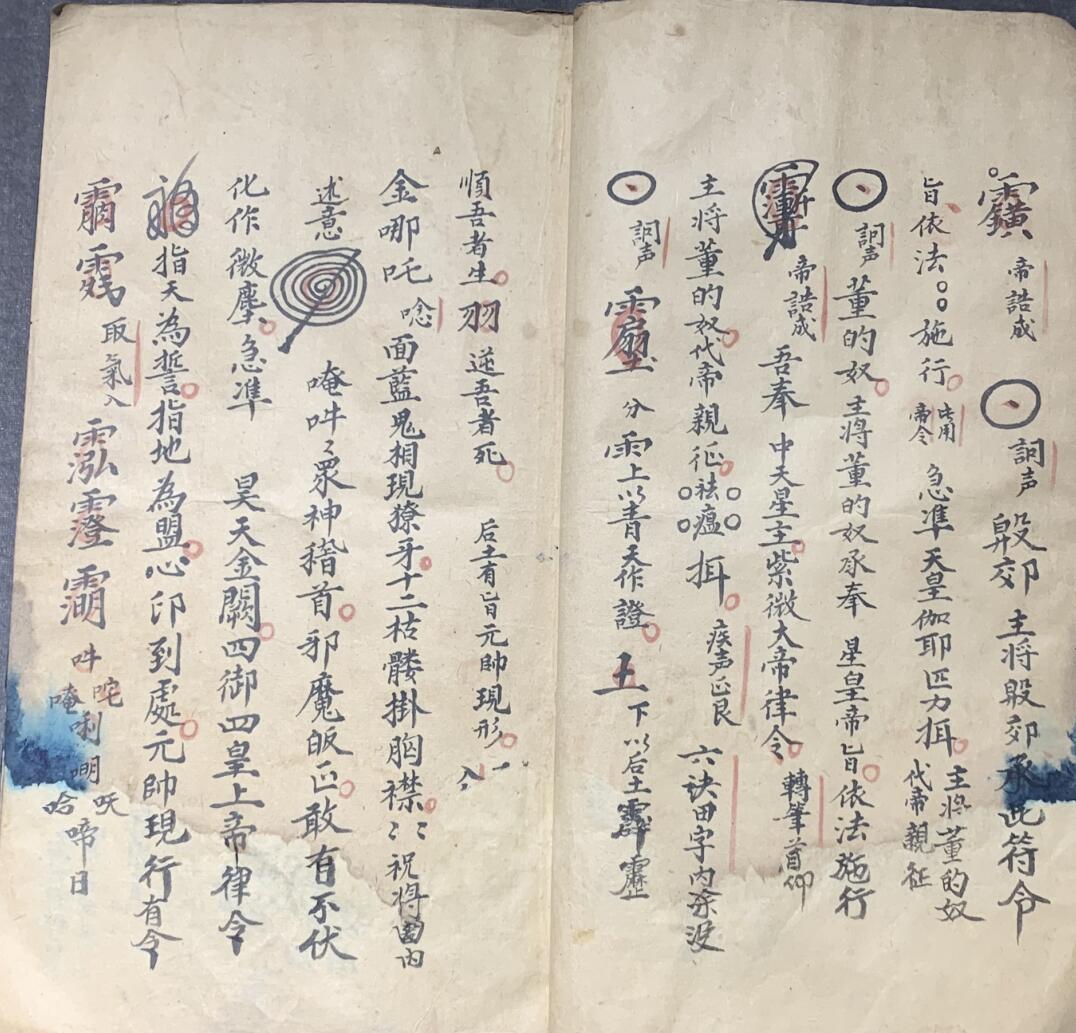 帝誥成 詞声 殷郊 主将殷郊承此符令
旨依法施行 此用帝令 急准天皇伽耶匹力揖 主将董的奴代帝親征
詞声 董的奴 主將董的奴承奉 星皇帝旨依法施行
帝誥成 吾奉 中天星主紫微大帝律令 轉筆首仰
主将董的奴代帝親征祛瘟揖 疾声正艮 六诀田字内
詞声 分 雨上以青天作證 土下以后土霹靂
順吾者生 羽 逆吾者死 后土有旨元帥現形 一 入
金哪吒 唸 面藍鬼相現獠牙十二枯髏掛胸襟 祝將 内
述意 唵吽〻眾神稽首邪魔皈正敢有不伏
化作微塵急准 昊天金闕四御四皇上帝律令
指天為誓指地為盟心印到處元帥現行有令
取氣入 泓 澄 吽 咤唎唵 㗂日